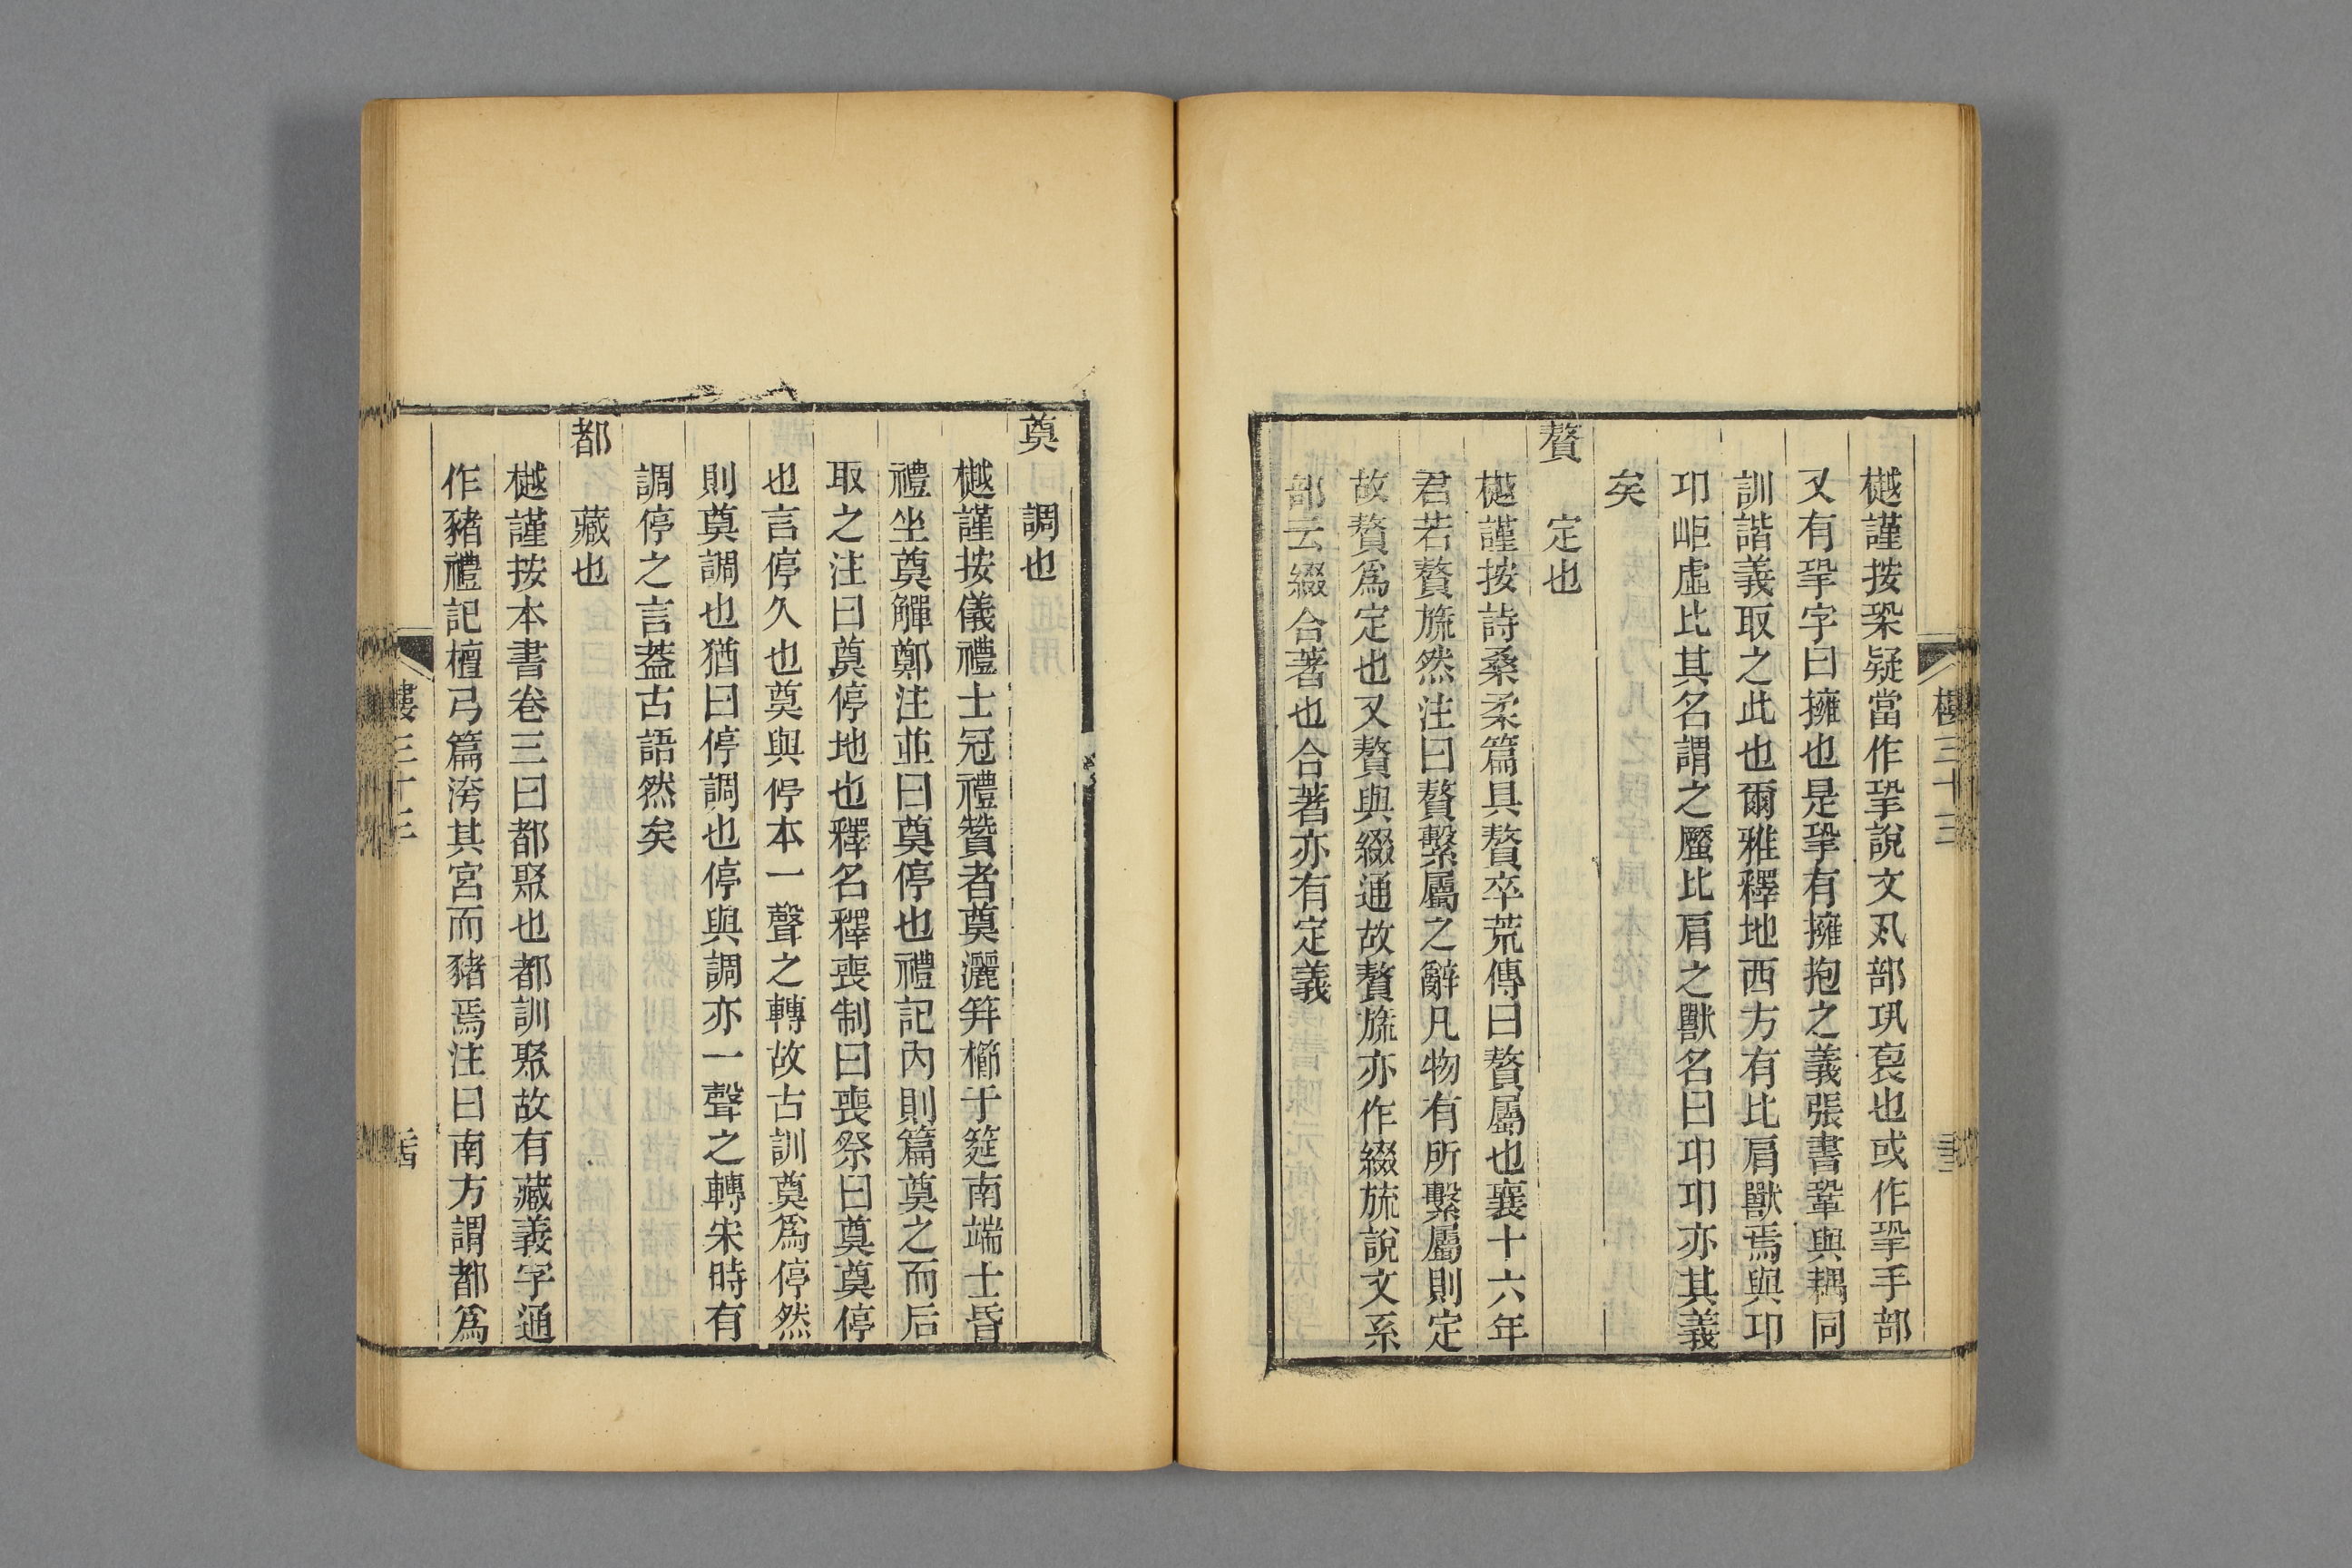 樾謹按𢀜疑當作㧬說文丮部巩袌也或作㧬手部
又有㧬字曰擁也是㧬有擁抱之義張書鞏與耦同
訓諧義取之此也爾雅釋地西方有比肩獸焉與邛
邛岠虛比其名謂之蟨比肩之獸名曰邛邛亦其義
矣
贅 定也
樾謹按詩桑柔篇具贅卒荒傳曰贅屬也襄十六年
君若贅旒然注曰贅繫屬之辭凡物有所繫屬則定
故贅爲定也又贅與綴通故贅旒亦作綴旒說文系
部云綴合著也合著亦有定義
奠 調也
樾謹按儀禮士冠禮贊者奠灑笄櫛于筵南端士昏
禮坐奠觶鄭注並曰奠停也禮記內則篇奠之而后
取之注曰奠停地也釋名釋喪制曰喪祭曰奠奠停
也言停久也奠與停本一聲之轉故古訓奠爲停然
則奠調也猶曰停調也停與調亦一聲之轉宋時有
調停之言葢古語然矣
都 藏也
樾謹按本書卷三曰都聚也都訓聚故有藏義字通
作豬禮記檀弓篇洿其宮而豬焉注曰南方謂都爲